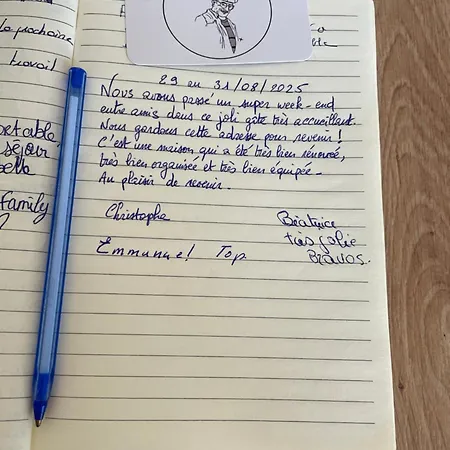 la prochaine
travail
ortable,
séjour
family
29 au 31/08/2025
Nous avons passé un super week-end
entre amis dans ce joli gîte très accueillant.
Nous gardons cette adresse pour revenir !
C'est une maison qui a été très bien rénovée,
très bien organisée et très bien équipée.
Au plaisir de revenir.
Christophe
Béatrice
très jolie
Bravos.
Emmanuel Top